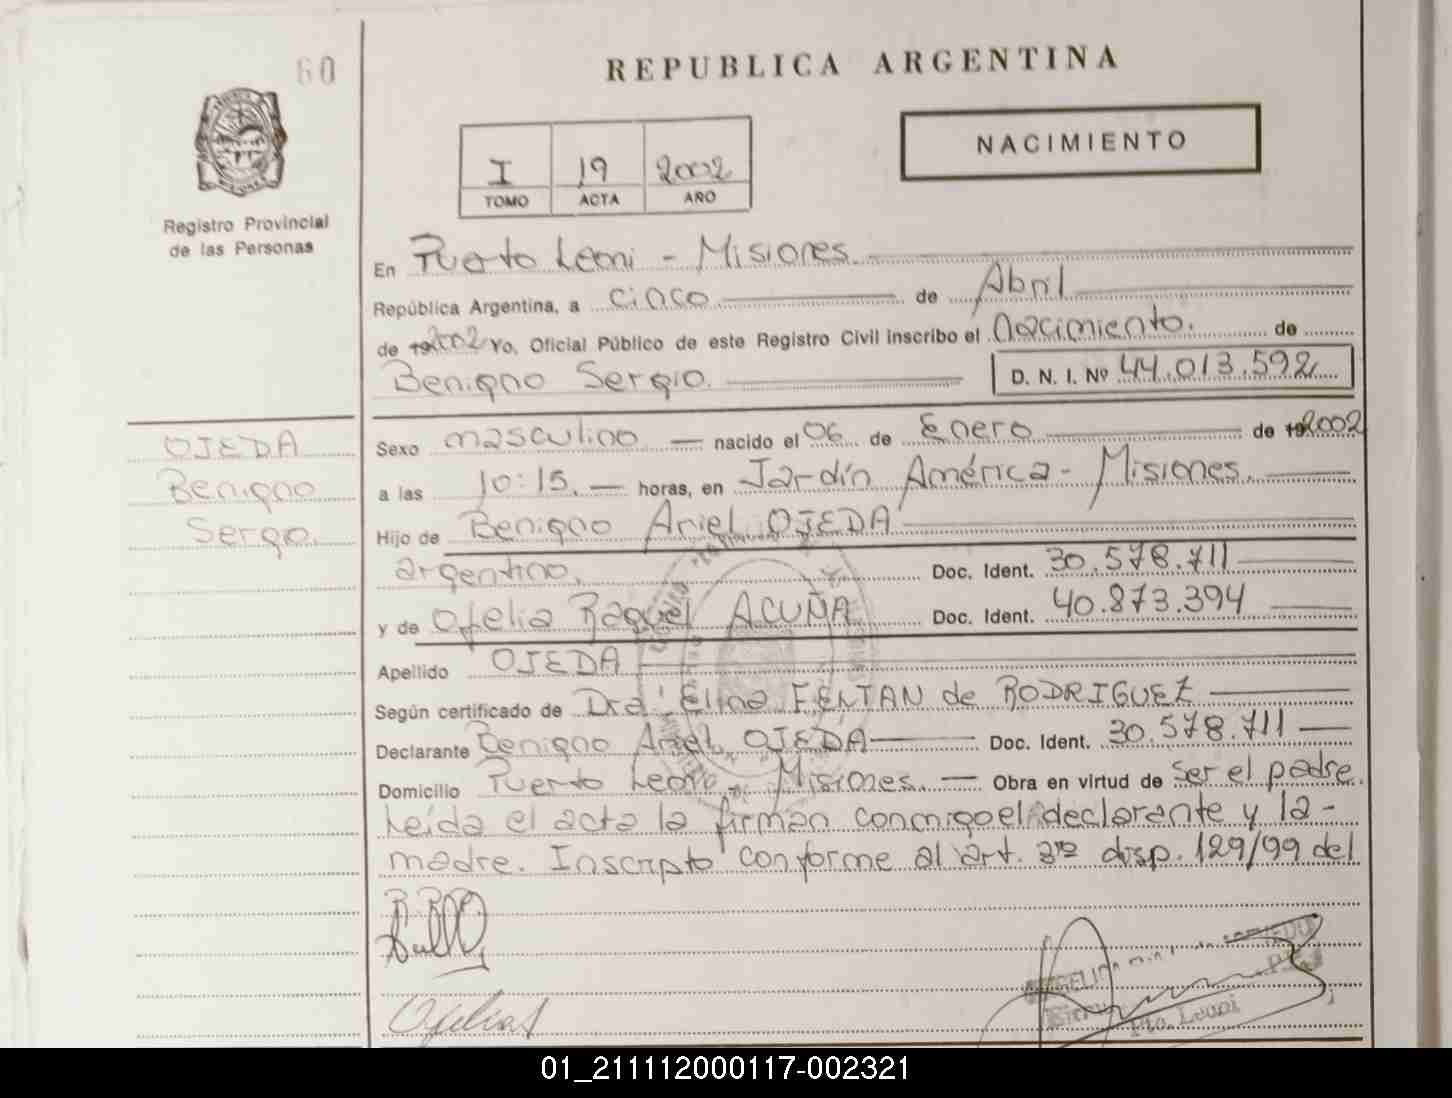 60
REPUBLICA ARGENTINA
NACIMIENTO
I 19 2002
TOMO ACTA AÑO
Registro Provincial
de las Personas
En Puerto Leoni - Misiones
República Argentina, a cinco de Abril
de 192002 Yo, Oficial Público de este Registro Civil inscribo el nacimiento. de
Benigno Sergio. D. N. I. Nº 44.013.592
OJEDA
Benigno
Sergio.
Sexo masculino nacido el 06 de Enero de 192002
a las 10:15. horas, en Jardín América - Misiones.
Hijo de Benigno Ariel OJEDA
argentino. Doc. Ident. 30.578.711
y de Ofelia Raquel ACUÑA Doc. Ident. 40.873.394
Apellido OJEDA
Según certificado de Dra. Elina FELTAN de RODRIGUEZ
Declarante Benigno Ariel OJEDA Doc. Ident. 30.578.711
Domicilio Puerto Leoni, Misiones. Obra en virtud de ser el padre.
Leída el acta la firman conmigo el declarante y la
madre. Inscripto conforme al art. disp. 129/99 del
Pto. Leoni
01_211112000117-002321